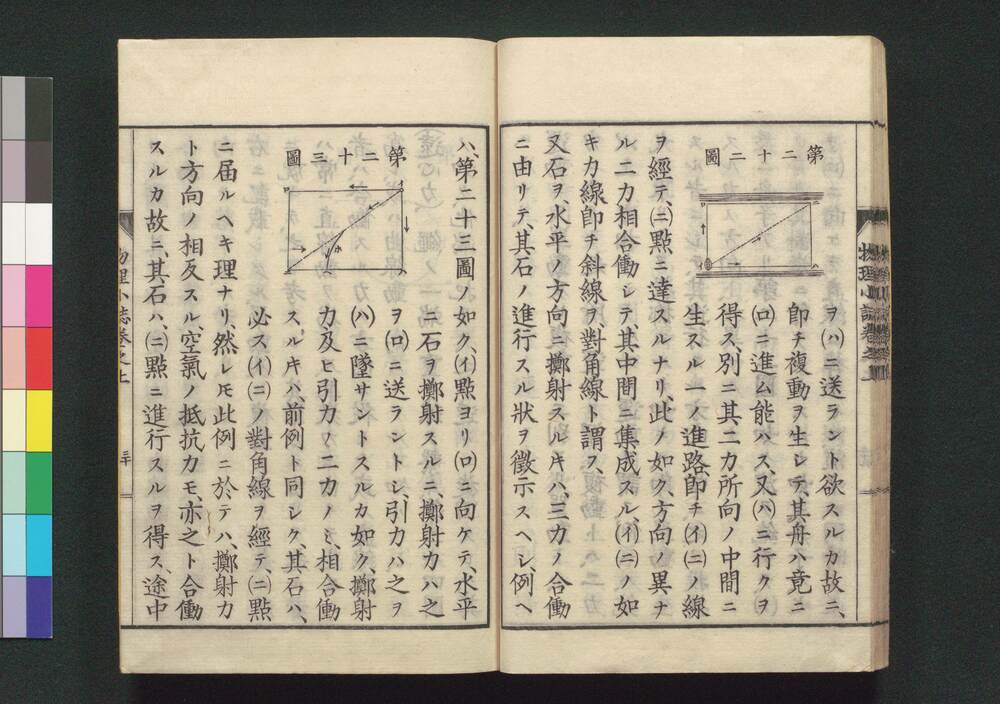 第二十二圖
ヲ(ハ)ニ送ラント欲スルカ故ニ、
卽チ複動ヲ生シテ、其舟ハ竟ニ
(ロ)ニ進ム能ハス、又(ハ)ニ行クヲ
得ス、別ニ其二力所向ノ中間ニ
生スル一ノ進路卽チ(イ)(ニ)ノ線
ヲ經テ、(ニ)點ニ達スルナリ、此ノ如ク、方向ノ異ナ
ル二力相合働シテ、其中間ニ集成スル、(イ)(ニ)ノ如
キ力線卽チ斜線ヲ、對角線ト謂フ、
又石ヲ、水平ノ方向ニ擲射スルキハ、三力ノ合働
ニ由リテ、其石ノ進行スル狀ヲ徵示スヘシ、例ヘ
ハ、第二十三圖ノ如ク、(イ)點ヨリ(ロ)ニ向ケテ、水平
第二十三圖
ニ石ヲ擲射スルニ、擲射力ハ之
ヲ(ロ)ニ送ラントシ、引力ハ之ヲ
(ハ)ニ墜サントスルカ如ク、擲射
力及ヒ引力ノ二力ノミ、相合働
スルキハ、前例ト同シク、其石ハ、
必ス(イ)(ニ)ノ對角線ヲ經テ、(ニ)點
ニ届ルヘキ理ナリ、然レ𪜈此例ニ於テハ、擲射力
ト方向ノ相反スル、空氣ノ抵抗力モ、亦之ト合働
スルカ故ニ、其石ハ、(ニ)點ニ進行スルヲ得ス、途中
物理小誌卷之上
二十